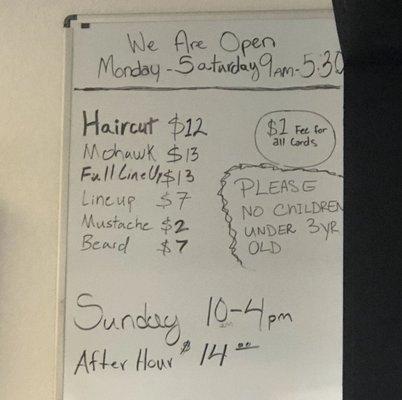 We Are Open
Monday - Saturday 9AM - 5:30
Haircut $12
Mohawk $13
Full LineUp $13
Lineup $7
Mustache $2
Beard $7
$1 Fee for
all Cards
PLEASE
NO CHILDREN
UNDER 3YR
OLD
Sunday 10am-4pm
After Hour $14.00